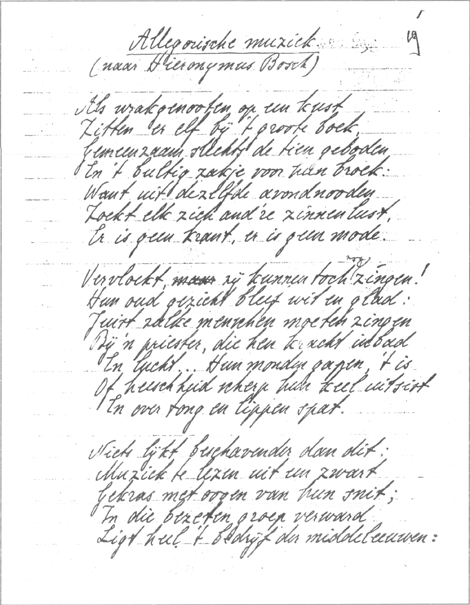 19
Allegorische muziek
(naar Hieronymus Bosch)
Als wrakgenooten op een kust
Zitten er elf bij 't groote boek,
Gemeenzaam slechts de tien geboden
In 't bultig zakje voor hun broek:
Want uit dezelfde avondnooden
Zoekt elk zich and're zinnenlust,
Er is geen krant, er is geen mode.
Vervloekt, maar zij kunnen toch nog zingen!
Hun oud gezicht bleef wit en glad:
Juist zulke menschen moeten zingen
Bij 'n priester, die hen kracht inbad
In lucht... Hun monden gapen, 't is
Of heeschheid scherp hun keel uitsist
En over tong en lippen spat.
Niets lijkt beschavender dan dit:
Muziek te lezen uit een zwart
Gekras met oogen van hun snit;
In die bezeten groep verward
Ligt heel 't bedrijf der middeleeuwen: